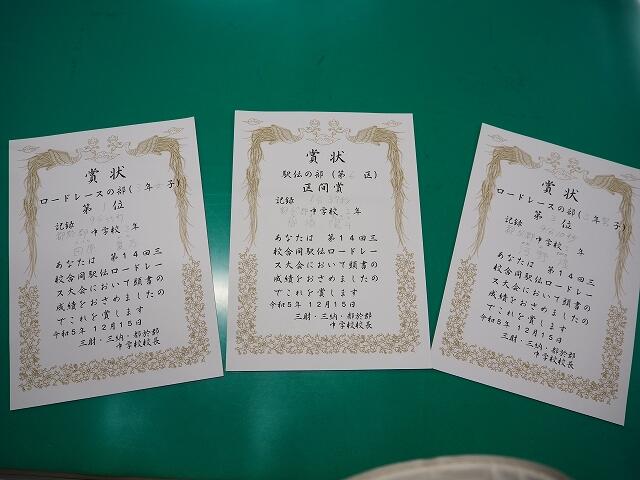 賞状
ロードレースの部( 年 子)
第 位
記録
中学校 年
あなたは 第14回三
校合同駅伝ロードレー
ス大会において頭書の
成績をおさめましたの
でこれを賞します
令和5年12月15日
三財・三納・都於郡
中学校校長
賞状
駅伝の部(第 区)
区間賞
記録
都於郡中学校 年
あなたは 第14回三
校合同駅伝ロードレー
ス大会において頭書の
成績をおさめましたの
でこれを賞します
令和5年12月15日
三財・三納・都於郡
中学校校長
賞状
ロードレースの部( 年 子)
第 位
記録
中学校 年
あなたは 第14回三
校合同駅伝ロードレー
ス大会において頭書の
成績をおさめましたの
でこれを賞します
令和5年12月15日
三財・三納・都於郡
中学校校長